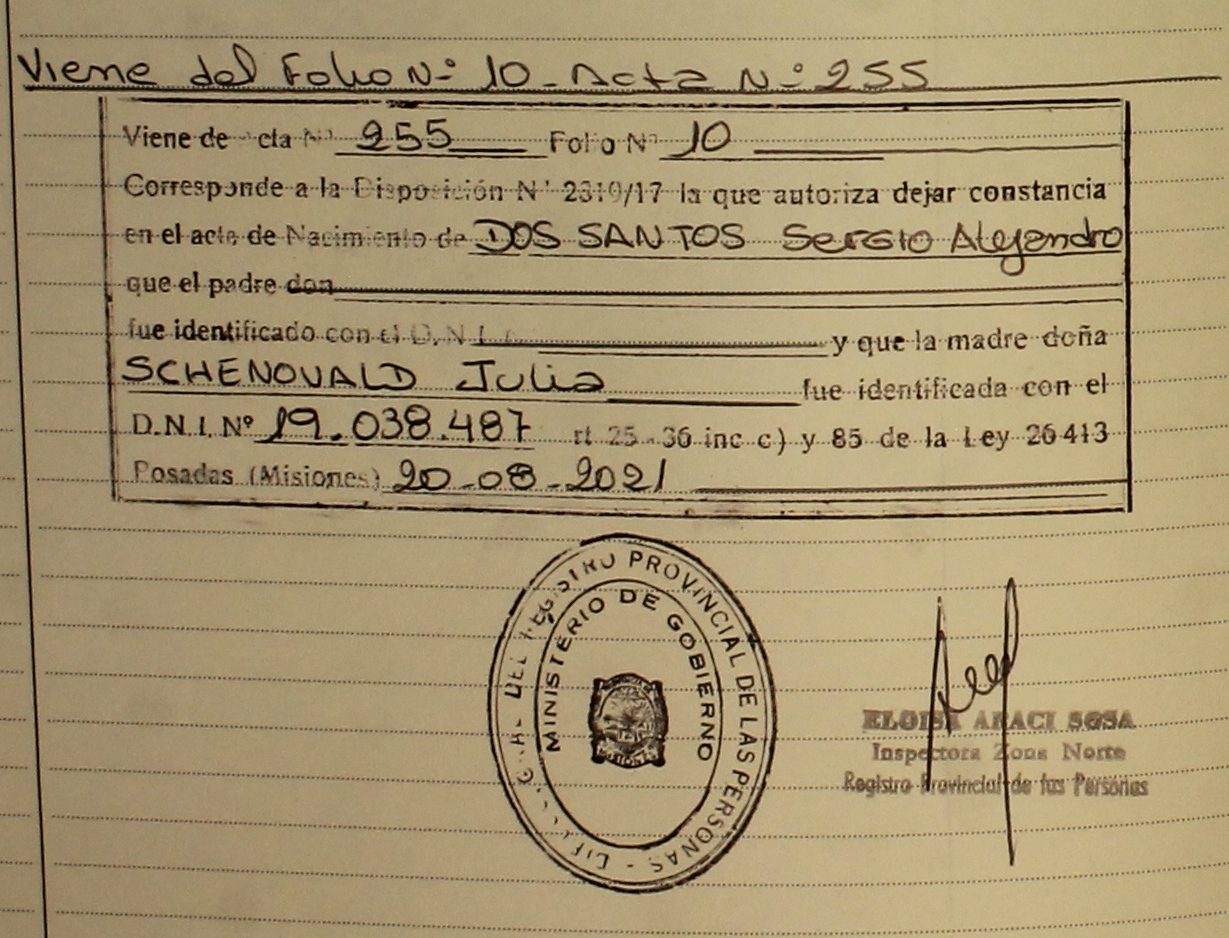 Viene del Folio Nº 10 - Acta Nº 255
Viene de cta Nº 255 Folio Nº 10
Corresponde a la Disposición Nº 2310/17 la que autoriza dejar constancia
en el acta de Nacimiento de DOS SANTOS Sergio Alejandro
que el padre don
fue identificado con el D.N.I.
y que la madre doña
SCHENOVALD Julia fue identificada con el
D.N.I. Nº 19.038.487 rt 25 - 36 inc c) y 85 de la Ley 26413
Posadas (Misiones) 20-08-2021
DEL REGISTRO PROVINCIAL DE LAS PERSONAS -
MINISTERIO DE GOBIERNO
ELOISA ARACI SOSA
Inspectora Zona Norte
Registro Provincial de las Personas